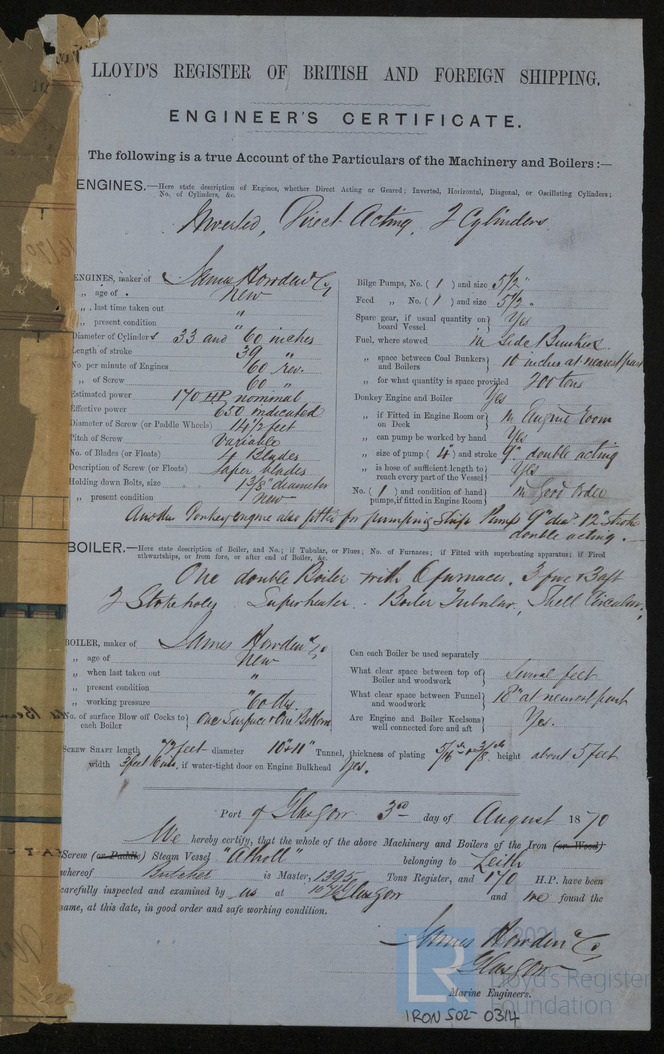 LLOYD'S REGISTER OF BRITISH AND FOREIGN SHIPPING.
ENGINEER'S CERTIFICATE.
The following is a true Account of the Particulars of the Machinery and Boilers:—
ENGINES.—Here state description of Engines, whether Direct Acting or Geared; Inverted, Horizontal, Diagonal, or Oscillating Cylinders;
No. of Cylinders, &c.
Inverted, Direct Acting, 2 Cylinders
ENGINES, maker of James Howden & Co
„ age of . New
„ . last time taken out "
„ present condition "
Diameter of Cylinders 33 and 60 inches
Length of stroke 39 "
No. per minute of Engines 60 rev.
„ of Screw 60 "
Estimated power 170 HP nominal
Effective power 650 indicated
Diameter of Screw (or Paddle Wheels) 14 1/2 feet
Pitch of Screw Variable
No. of Blades (or Floats) 4 Blades
Description of Screw (or Floats) blades
Holding down Bolts, size 1 3/8" diameter
„ present condition New
Bilge Pumps, No. ( 1 ) and size 5 1/2"
Feed „ No. ( 1 ) and size 5 1/2 "
Spare gear, if usual quantity on board Vessel Yes
Fuel, where stowed in Side Bunkers
„ space between Coal Bunkers and Boilers 10 inches at nearest part
„ for what quantity is space provided 200 tons
Donkey Engine and Boiler Yes
„ if Fitted in Engine Room or on Deck in Engine Room
„ can pump be worked by hand Yes
„ size of pump ( 4" ) and stroke 9" double acting
„ is hose of sufficient length to reach every part of the Vessel Yes
No. ( 1 ) and condition of hand pumps, if fitted in Engine Room in Good Order
Another Donkey engine also fitted for pumping ship Pump 9" dia 12" stroke
double acting.
BOILER.—Here state description of Boiler, and No.; if Tubular, or Flues; No. of Furnaces; if Fitted with superheating apparatus; if Fired
athwartships, or from fore, or after end of Boiler, &c.
One double Boiler with 6 furnaces. 3 fore & 3 aft
2 Stokeholes. Superheater. Boiler Tubular, Shell Circular,
BOILER, maker of James Howden & Co
„ age of New
„ when last taken out "
„ present condition "
„ working pressure 60 lbs.
No. of surface Blow off Cocks to each Boiler One Surface & One Bottom
Can each Boiler be used separately
What clear space between top of Boiler and woodwork Several feet
What clear space between Funnel and woodwork 18" at nearest part
Are Engine and Boiler Keelsons well connected fore and aft Yes.
SCREW SHAFT length 72 feet diameter 10" & 11" Tunnel, thickness of plating 5/16 ths & 3/8 ths height about 5 feet
width 3 feet 6 ins, if water-tight door on Engine Bulkhead Yes.
Port of Glasgow 3rd day of August 1870
We hereby certify, that the whole of the above Machinery and Boilers of the Iron (or Wood)
Screw (or Paddle) Steam Vessel "Atholl" belonging to Leith
whereof Butcher is Master, 1395 Tons Register, and 170 H.P. have been
carefully inspected and examined by us at Glasgow and we found the
same, at this date, in good order and safe working condition.
James Howden & Co
Glasgow
Marine Engineers.
© 2021
LR
Lloyd's Register
Foundation
IRON 502-0314